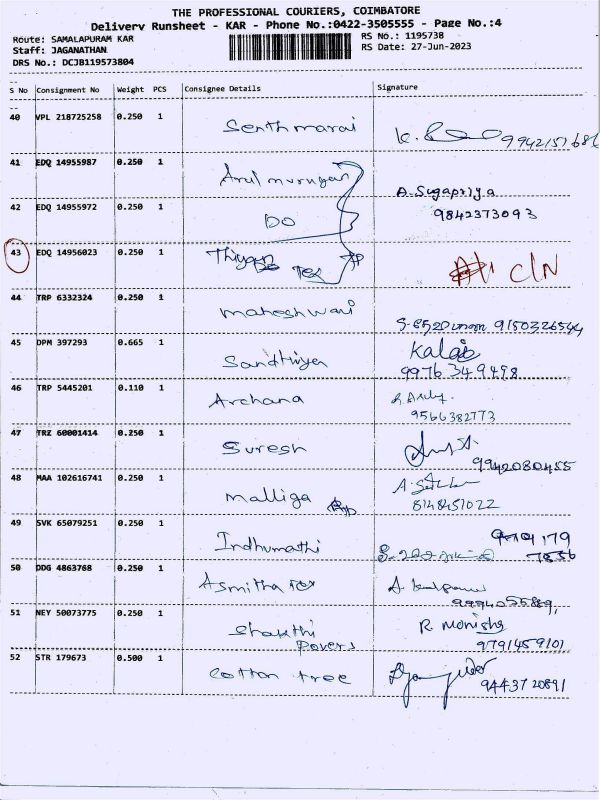 THE PROFESSIONAL COURIERS, COIMBATORE
Delivery Runsheet - KAR - Phone No.:0422-3505555 - Page No.:4
Route: SAMALAPURAM KAR RS No.: 1195738
Staff: JAGANATHAN RS Date: 27-Jun-2023
DRS No.: DCJB119573804
S No Consignment No Weight PCS Consignee Details Signature
40 VPL 218725258 0.250 1 Senthmarai
41 EDQ 14955987 0.250 1 Arulmurugan A. Sugapriya
42 EDQ 14955972 0.250 1 DO 9842373093
43 EDQ 14956023 0.250 1 Tex C/N
44 TRP 6332324 0.250 1 maheshwari 9150326544
45 DPM 397293 0.665 1 Sandhiya Kalai
9976349498
46 TRP 5445201 0.110 1 Archana
9566382773
47 TRZ 60001414 0.250 1 Suresh
9942080455
48 MAA 102616741 0.250 1 malliga
8148451022
49 SVK 65079251 0.250 1 Indhumathi
50 DDG 4863768 0.250 1 Asmitha Tex
51 NEY 50073775 0.250 1 Shakthi R. Monisha
Povers 9791459101
52 STR 179673 0.500 1 Cotton tree
9443720891